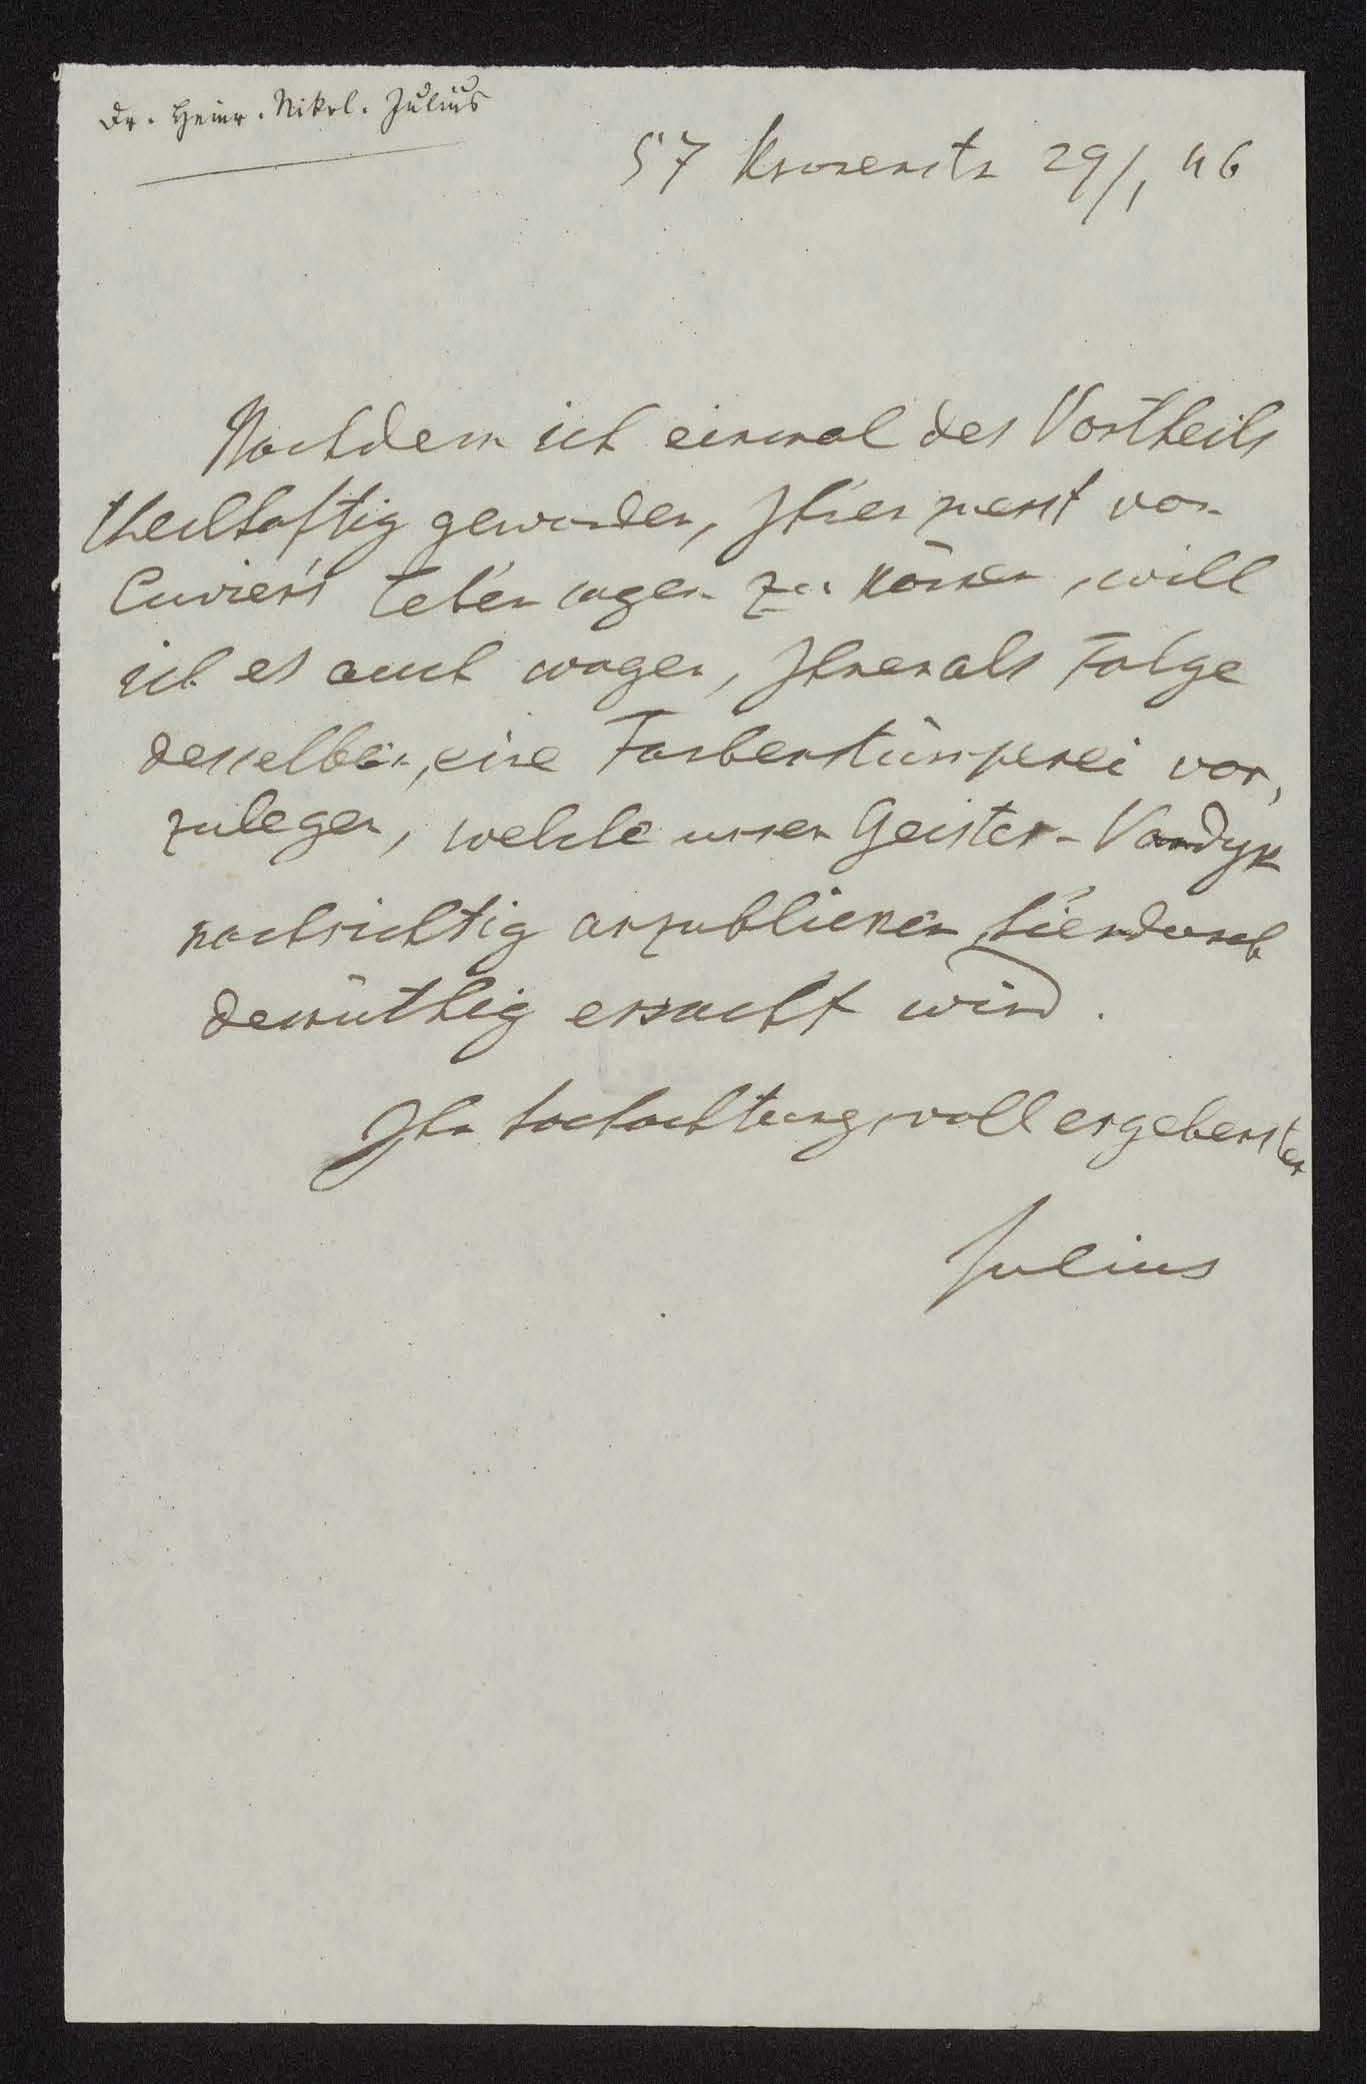 Dr. Heinr. Nikol. Julius
57 Kronenstr 29/1 46
Nachdem ich einmal des Vortheils
theilhaftig geworden, Ihnen zuerst von
Cuvier's Leben sagen zu können, will
ich es auch wagen, Ihnen als Folge
desselben, eine Farbenstümperei vor,
zulegen, welche unser Geister-Vandyk
nachsichtig anzublicken hierdurch
demüthig ersucht wird.
Ihr hochachtungsvoll ergebenster
Julius